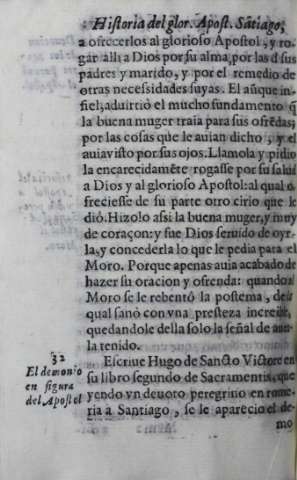 Historia del glor. Apost. Sātiago,
a ofrecerlos al glorioso Apostol, y ro-
gar alli a Dios por su alma, por las d̄ sus
padres y marido, y por el remedio de
otras necessidades suyas. El aūque in-
fiel, aduirtió el mucho fundamento q̄
la buena muger traia para sus ofrēdas;
por las cosas que le auian dicho, y el
auia visto por sus ojos. Llamola y pidio
la encarecidamēte rogasse por su salud
a Dios y al glorioso Apostol: al qual o-
freciesse de su parte otro cirio que le
dió. Hizolo assi la buena muger, y muy
de coraçon: y fue Dios seruido de oyr-
la, y concederla lo que le pedia para el
Moro. Porque apenas auia acabado de
hazer su oracion y ofrenda: quando al
Moro se le rebentó la postema, de la
qual sanó con vna presteza increible,
quedandole della solo la señal de auer
la tenido.
32
El demonio
en figura
del Apostol
Escriue Hugo de Sancto Victore en
su libro segundo de Sacramentis, que
yendo vn deuoto peregrino en rome-
ria a Santiago, se le aparecio el de-
mo